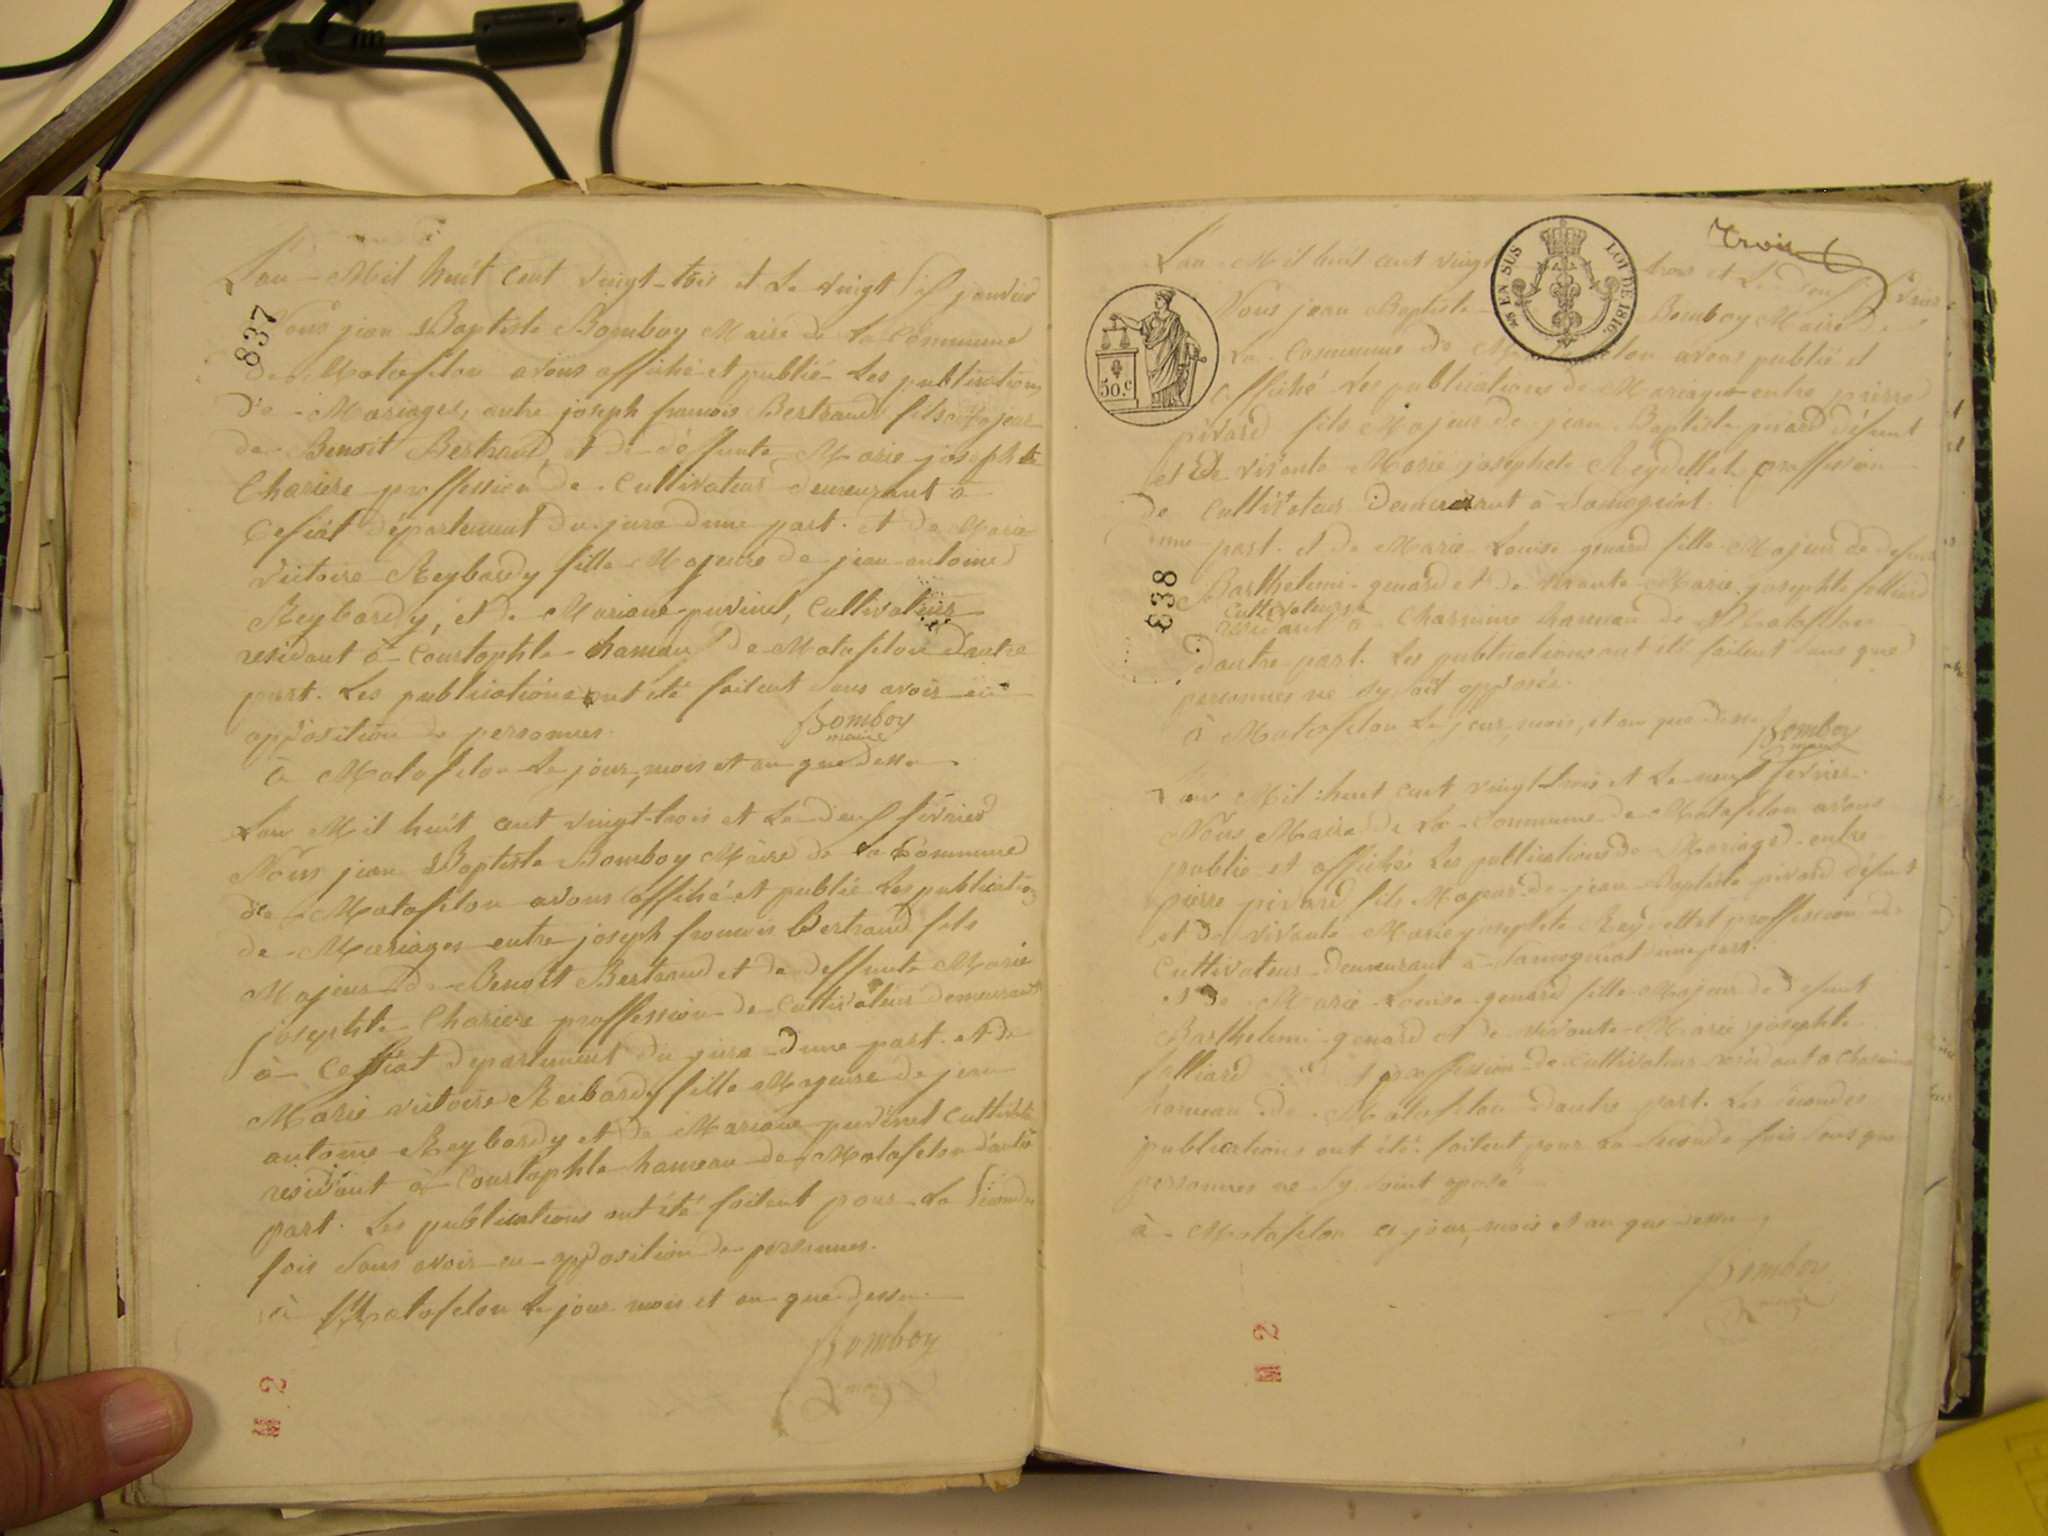 L'an Mil huit cent vingt-trois et Le vingt six janvier
Nous jean Baptiste Bomboy Maire de La Commune
de Matafelon avons affiché et publié Les publications
de Mariages, entre joseph francois Bertrand fils Majeur
de Benoit Bertrand, et de déffunte Marie josephte
Chariere proffession de Cultivateur demeurant à
Cefiat département du jura dune part. et de Marie
Victoire Reybardy fille Majeure de jean antoine
Reybardy, et de Mariane puvinel, Cultivateurs
residant à Courtophle hameau de Matafelon dautre
part. Les publications ont été faitent sans avoir eu
opposition de personnes.
Bomboy
maire
à Matafelon Le jour, mois et an que dessu
Lan Mil huit cent vingt-trois et Le deux février
Nous jean Baptiste Bomboy Maire de La Commune
de Matafelon avons affiché et publié Les publication
de Mariages entre joseph francois Bertrand fils
Majeur de Benoît Bertrand et de deffunte Marie
josephte Chariere proffession de Cultivateur demeurant
à Ceffiat departement du jura dune part. et de
Marie victoire Reibardy fille Majeure de jean
antoine Reybardy et de Mariane puvinel
residant à Courtophle hameau de Matafelon dautre
part. Les publications ont été faitent pour La Seconde
fois Sans avoir eu opposition de personnes.
à Matafelon Le jour mois et an que dessu
Bomboy
maire
837
M 2
Trois
AN EN SUS LOI DE 1816.
50.c
Lan Mil huit cent vingt trois et Le deux février
Nous jean Baptiste Bomboy Maire de
La Commune de Matafelon avons publié et
affiché Les publications de Mariages entre pierre
pivard fils Majeur de jean Baptiste pivard défunt
et De vivante Marie josephete Reydellet proffession
de Cultivateur Demeurant à Samogniat
dune part. et de Marie Louise genard fille Majeur de defunt
Barthelemi genard et de vivante Marie josephte folliard
Cultivateurs
residant à Charmine hameau de Matafelon
dautre part. Les publications ont été faitent Sans que
personnes ne Sy soit opposés.
à Matafelon Le jour, mois, et an que dessu
Bomboy
maire
838
Lan Mil huit cent vingt trois et Le neuf fevrier
Nous Maire de La Commune de Matafelon avons
publié et affiché Les publications de Mariages entre
pierre pivard fils Majeur de jean Baptiste pivard défunt
et de vivante Marie josephte Reydellet proffession de
Cultivateur demeurant à Samogniat dune part.
et de Marie Louise genard fille Majeur de defunt
Barthelemi genard et de vivante Marie josephte
folliard proffession de Cultivateur residant a Charmine
hameau de Matafelon dautre part. Les secondes
publications ont été faitent pour La Seconde fois Sans que
personnes ne Sy soint oposé
à Matafelon Le jour, mois et an que dessu
Bomboy
maire
M 2